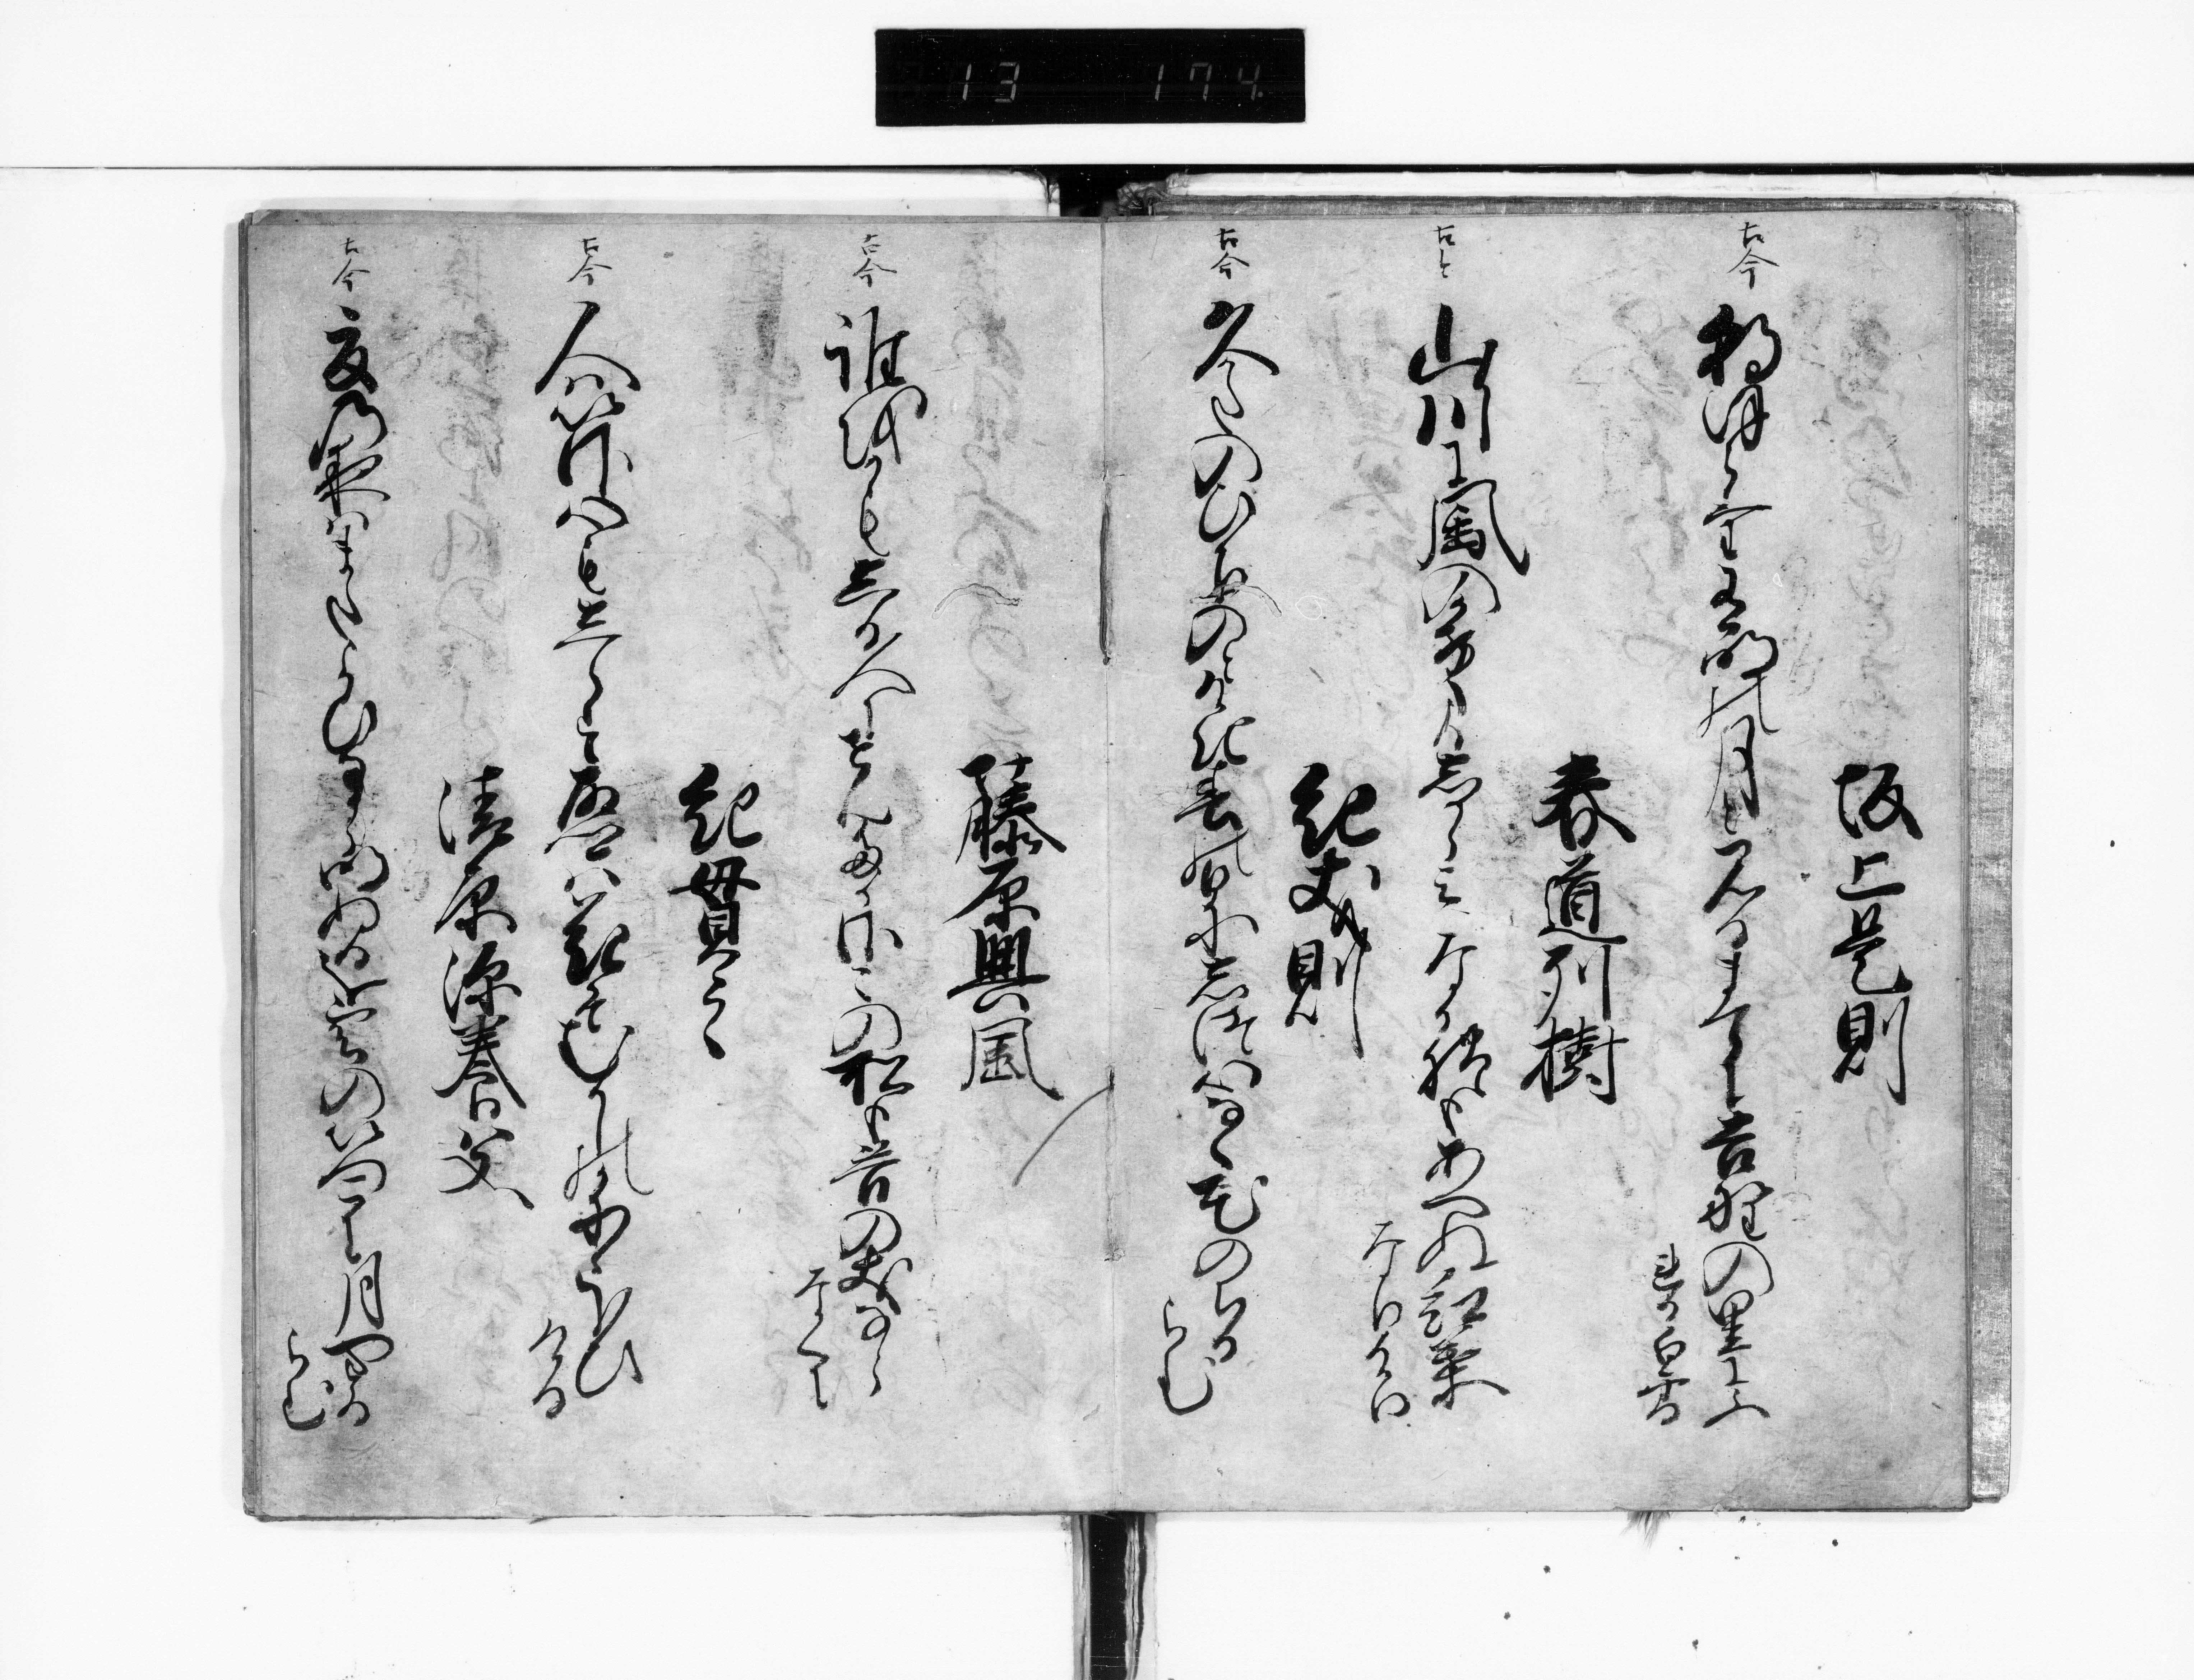 13 174
坂上是則
古今
朝ほらけ有明の月と見るまてに吉野の里にふ
れる白雪
春道列樹
古今
山川に風のかけたるしからみはなかれもあへぬ紅葉
なりけり
紀友則
古今
久かたのひかりのとけき春の日にしつ心なく花のちる
らむ
藤原興風
古今
誰をかもしる人にせむ高砂の松も昔の友なら
なくに
紀貫之
古今
人はいさ心もしらす故郷は花そむかしの香ににほひ
ける
清原深養父
古今
夏の夜はまたよひなから明ぬるを雲のいつこに月やとる
らむ